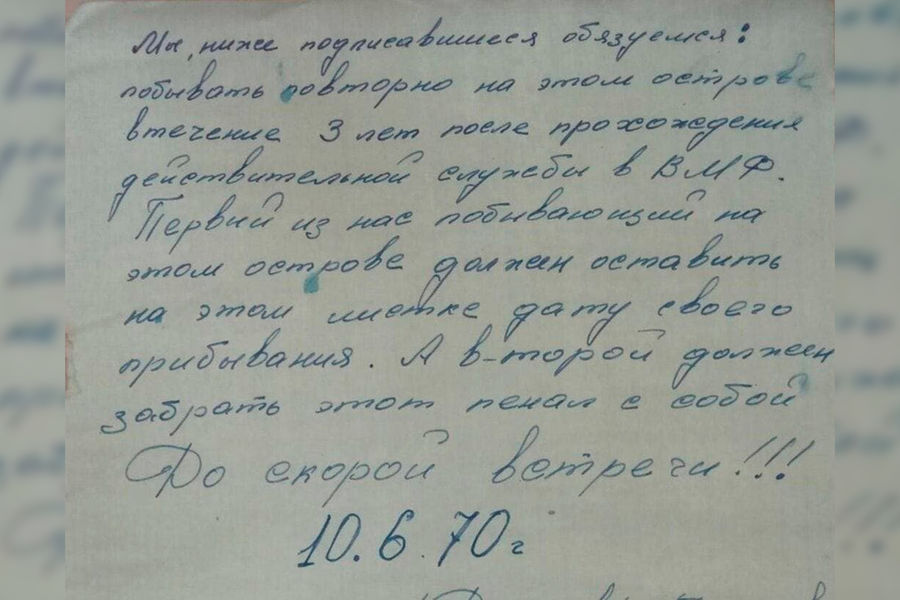 Мы, ниже подписавшиеся обязуемся:
побывать повторно на этом острове
втечение 3 лет после прохождения
действительной службы в ВМФ.
Первий из нас побывающий на
этом острове должен оставить
на этом листке дату своего
прибывания. А в-торой должен
забрать этот пенал с собой
До скорой встречи!!!
10.6.70г